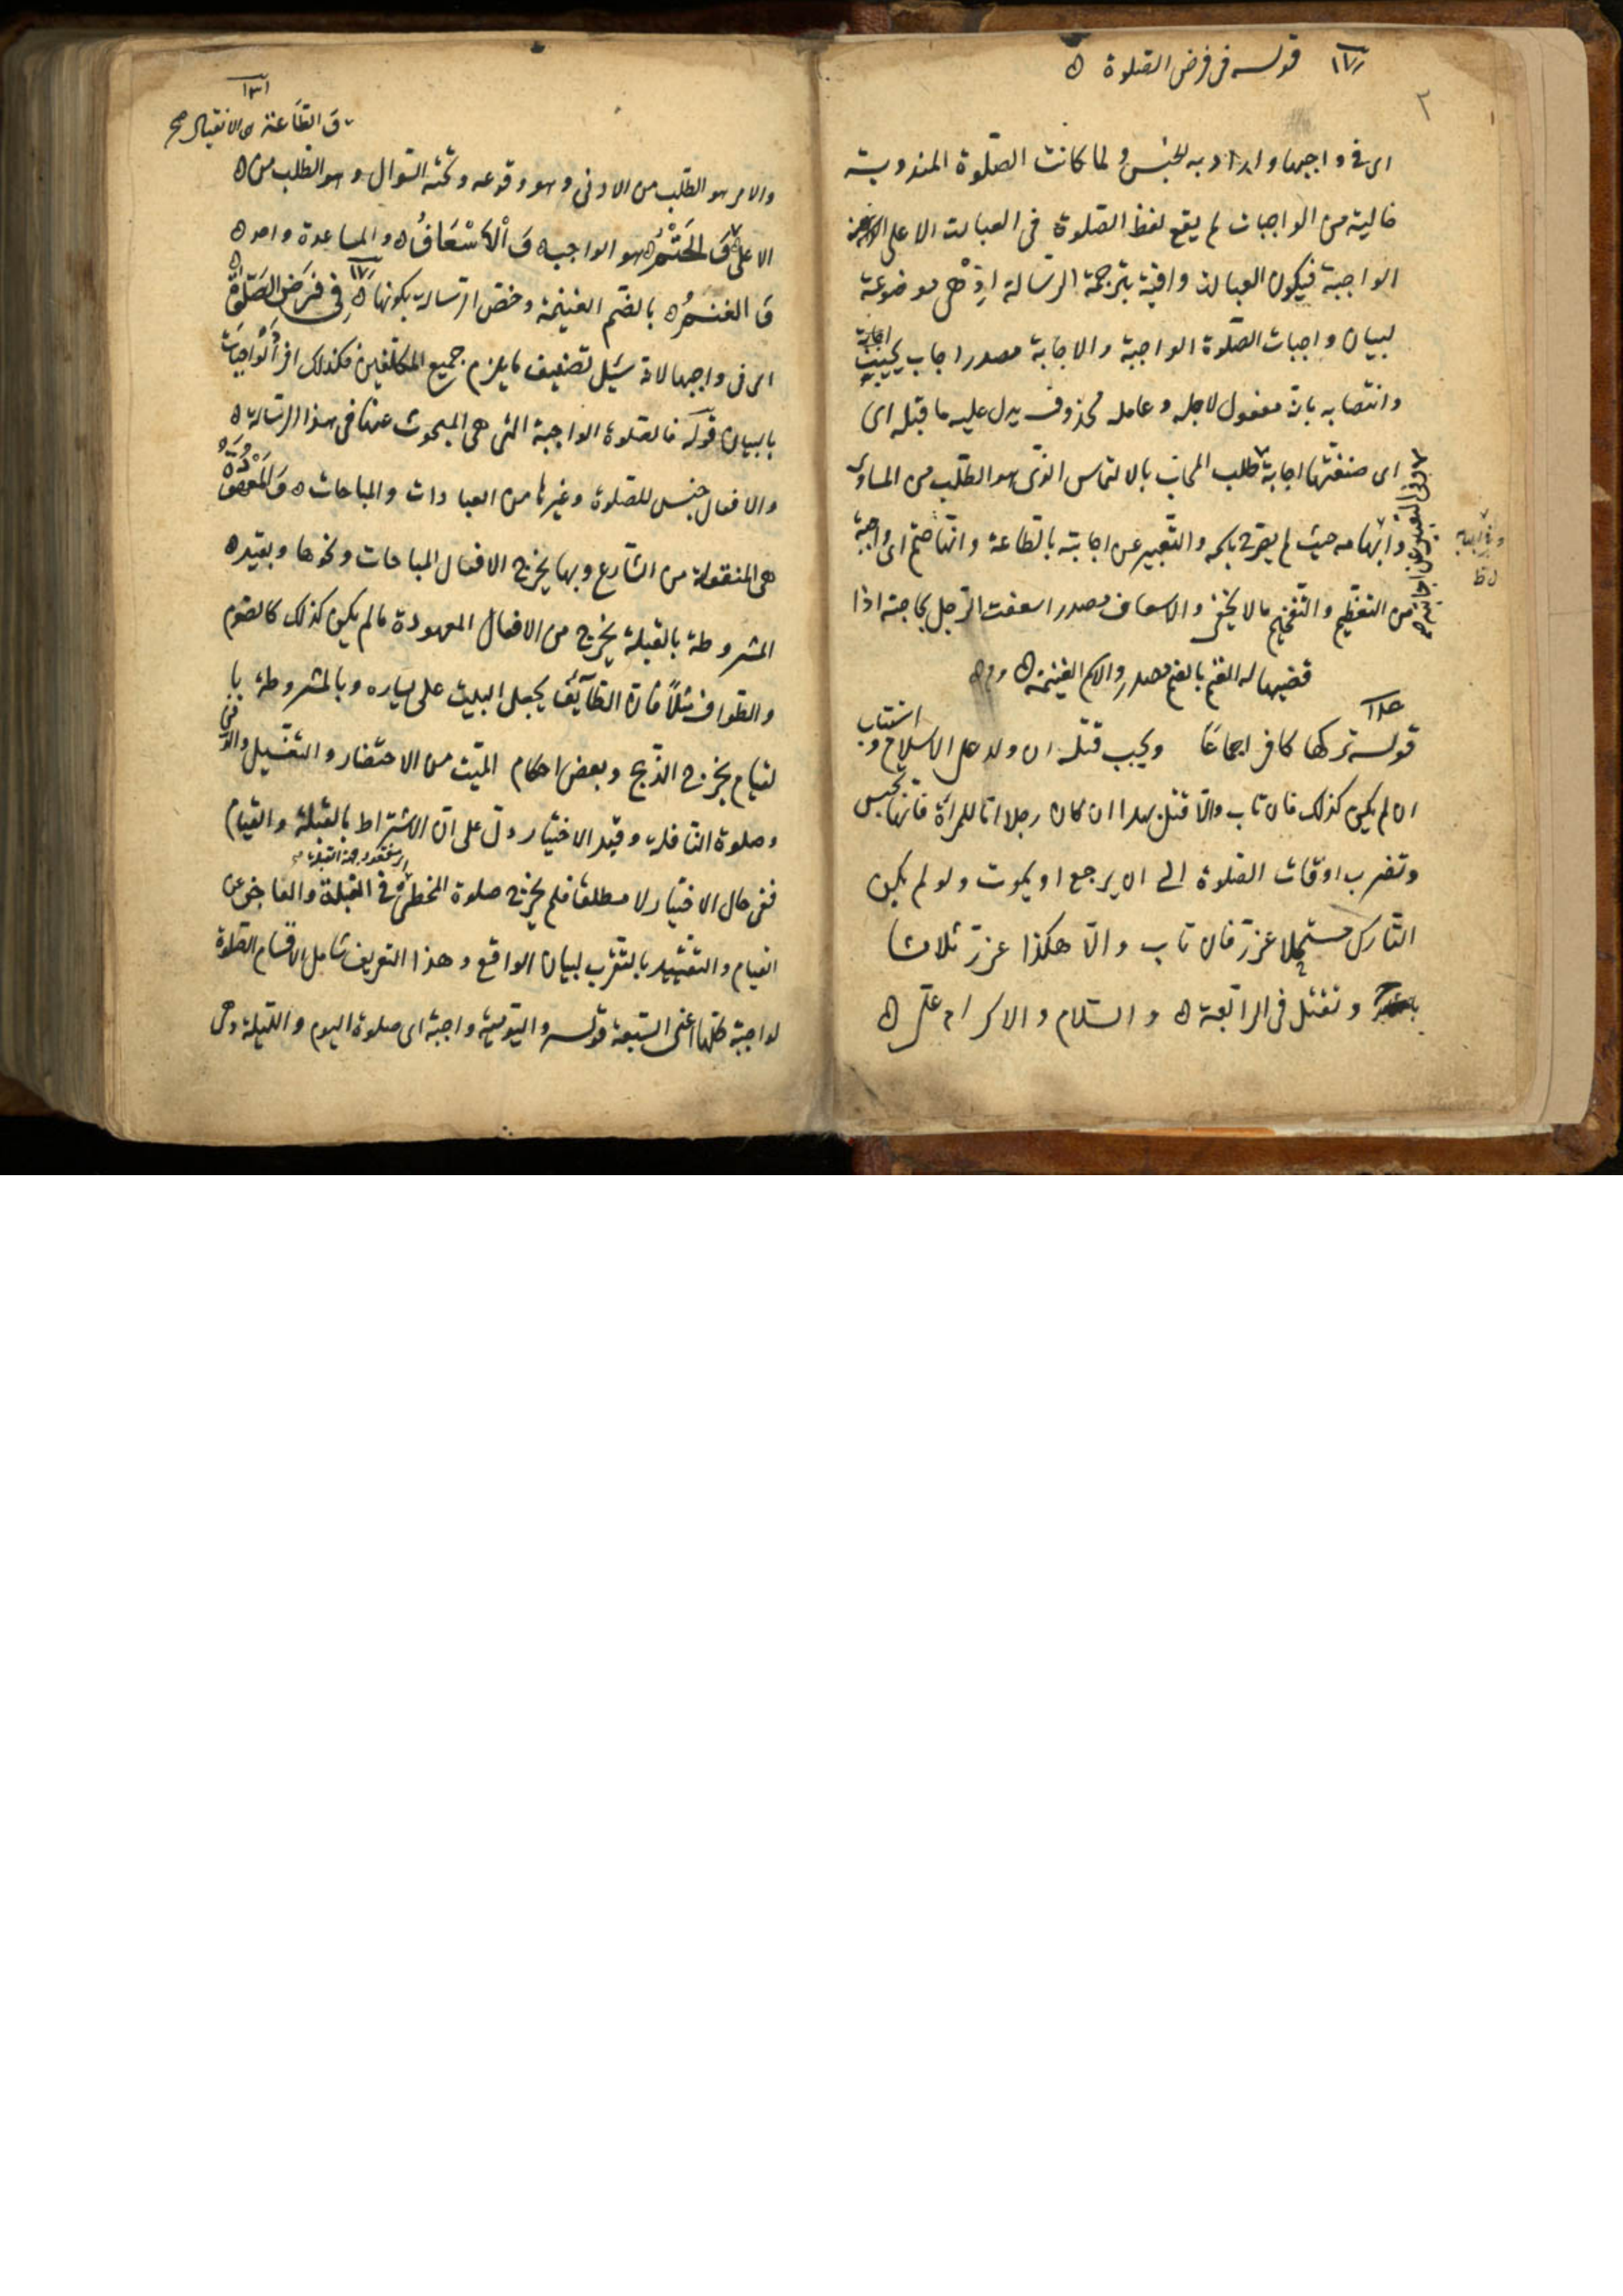 قوله في فرض الصلوة ه
٢
اى فى واجبها واراد به الجنس ولما كانت الصلوة المندوبة
خالية من الواجبات لم يقع لفظ الصلوة فى العبارت الا على
الواجبة فيكون العبارة وافية بترجمة الرسالة اذ هى موضوعة
لبيان واجبات الصلوة الواجبة والاجابة مصدر اجاب يجيب اجابة
وانتصابه بانه مفعول لاجله وعامله محذوف يدل عليه ما قبله اى
اى صنفتها اجابة طلب المجاب بالالتماس الذى هو الطلب من المساوى
وابهامه حيث لم يصرح باسمه والتعبير عن اجابته بالطاعة وانها حتم اى واجبة
من التعظيم والتفخيم ما لا يخفى والاسعاف مصدر اسعفت الرجل بحاجته اذا
قضيها له الغنم بالضم مصدر والاسم الغنيمة ه
وفى التعبير عن اجابته
قوله تركها كافر اجماعا ويجب قتله ان ولد على الاسلام و استتاب
ان لم يكن كذلك فان تاب والا قتل هدا ان كان رجلا اما المرأة فانها تحبس
وتضرب اوقات الصلوة الى ان يرجع او يموت ولو لم يكن
التارك مستحلا عزر فان تاب والا هكذا عزر ثلاثا
وتقتل فى الرابعة ه والسلام والاكرام
١٣١
ق الطاعة ه الانقياد صح
والامر هو الطلب من الادنى وهو وقوعه وتحته السوال وهو الطلب من ه
الاعلى وَ الحَتْمُ ه هو الواجب ه وَ الْاَسْعَافُ ه والمساعدة واحد ه
وَ الغنمُ ه بالضم الغنيمة وخص الرسالة بكونها ه فِى فَرَضِ الصَلوة ه
اى فى واجبها لانه سئل تصنيف ما يلزم جميع المكلفين فكذلك افرد الواجبات
بالبيان قوله فالصلوة الواجبة التى هى المبحوث عنها فى هذا الرسالة ه
والافعال جنس للصلوة وغيرها من العبادات والمباحات ه وَ المَعْهُودَةُ
هى المنقولة من الشارع وبها يخرج الافعال المباحات ونحوها وبقيد ه
المشروطة بالقبلة يخرج من الافعال المعهودة ما لم يكن كذلك كالصوم
والطواف مثلاً فان الطآئف يجعل البيت على يساره وبالمشروطة با
لقيام يخرج الذبح وبعض احكام الميت من الاحتضار والتغسيل والدفن
وصلوة النافلة وقيد الاختيار دل على ان الاشتراط بالقبلة والقيام
ففى حال الاختيار لا مطلقا فلم يخرج صلوة المخطئ فى القبلة والعاجز عن
القيام والتقييد بالتقرب لبيان الواقع وهذا التعريف شامل لاقسام الصلوة
لواجبة كلها اعنى السبعة قوله واليومية واجبة اى صلوة اليوم والليلة وهى